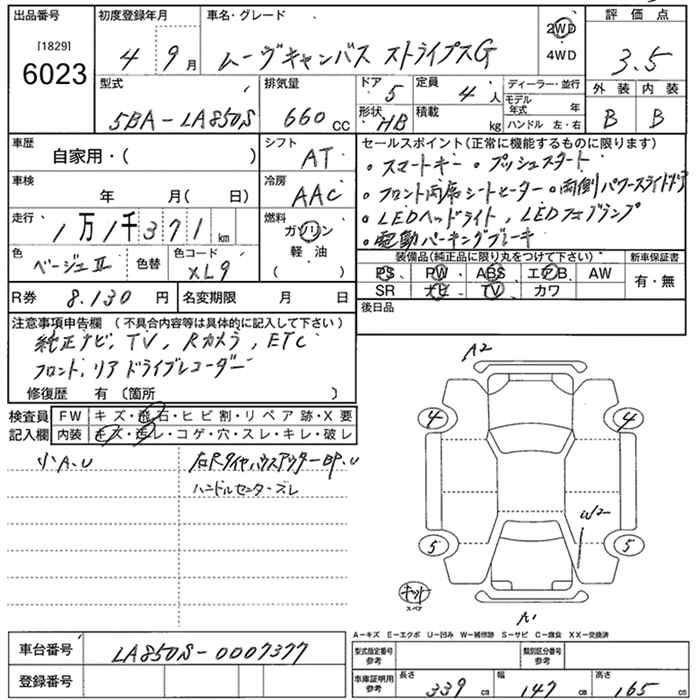 出品番号
[1829]
6023
初度登録年月
4 9月
車名・グレード
ムーヴキャンバス ストライプスG
2WD
4WD
評価点
3.5
外装 内装
B B
型式
5BA-LA850S
排気量
660cc
ドア
5
定員
4人
形状
HB
積載
kg
ディーラー・並行
モデル年式 年
ハンドル 左・右
車歴
自家用・( )
シフト
AT
車検
年 月( 日)
冷房
AAC
走行
1万1千371km
燃料
ガソリン
軽油
( )
色
ベージュⅡ
色替
色コード
XL9
R券 8.130円
名変期限 月 日
セールスポイント(正常に機能するものに限ります)
・スマートキー ・プッシュスタート
・フロント両席シートヒーター ・両側パワースライドドア
・LEDヘッドライト, LEDフォグランプ
・電動パーキングブレーキ
装備品(純正品に限り丸をつけて下さい)
PS PW ABS エアB AW
SR ナビ TV カワ
新車保証書
有・無
後日品
注意事項申告欄 (不具合内容等は具体的に記入して下さい)
純正ナビ, TV, Rカメラ, ETC
フロント, リアドライブレコーダー
修復歴 有〔箇所 〕
検査員記入欄
FW キズ・飛石・ヒビ割・リペア跡・X要
内装 キズ・汚レ・コゲ・穴・スレ・キレ・破レ
小A.U
右Rタイヤハウスアウター BP.U
ハンドルセンターズレ
A2
4 4
W2
5 5
キット
スペア
A1
A-キズ E-エクボ U-凹み W-補修跡 S-サビ C-腐食 XX-交換済
車台番号 LA850S-0007377
登録番号
型式指定番号 参考
類別区分番号 参考
車庫証明用 参考
長さ 339cm
幅 147cm
高さ 165cm